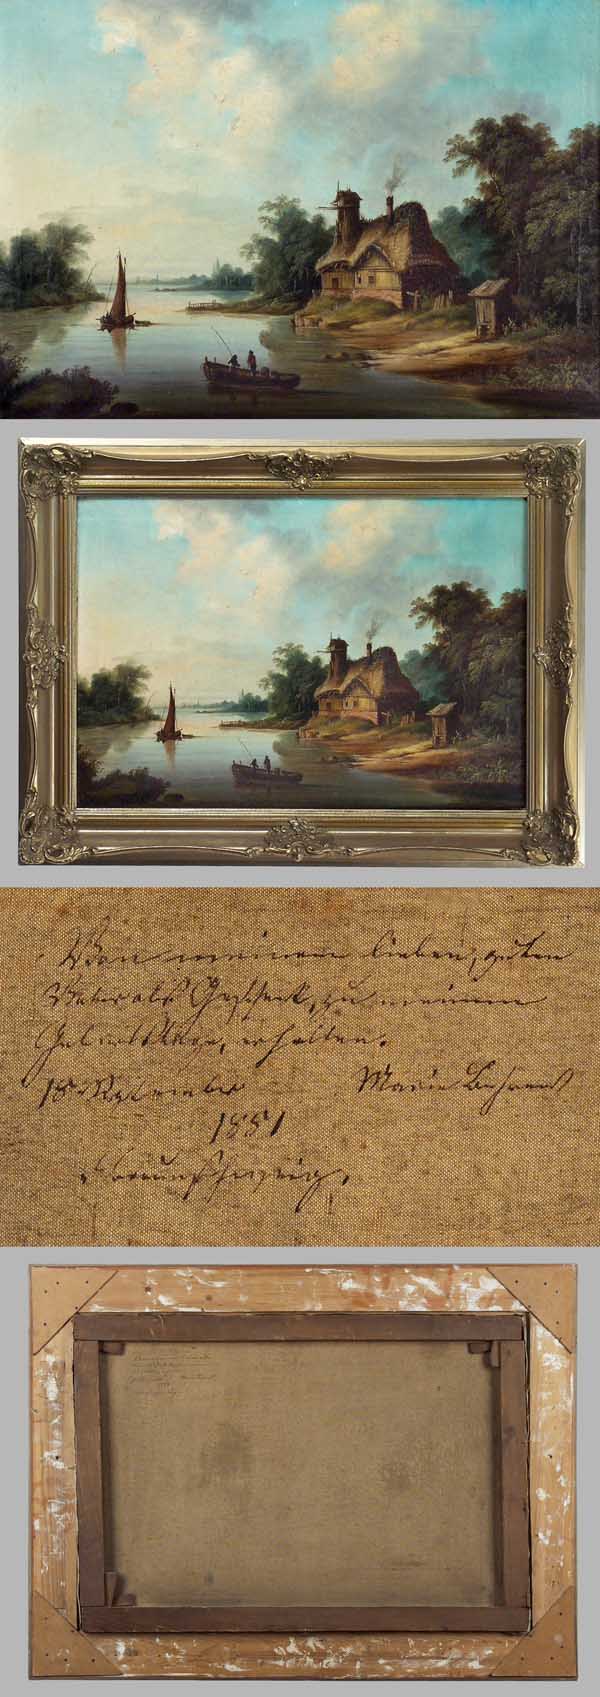 Von meinem lieben, guten
Vater als Geschenk, zu meinem
Geburtstage, erhalten.
18. September Marie Behrens
1881
Braunschweig.